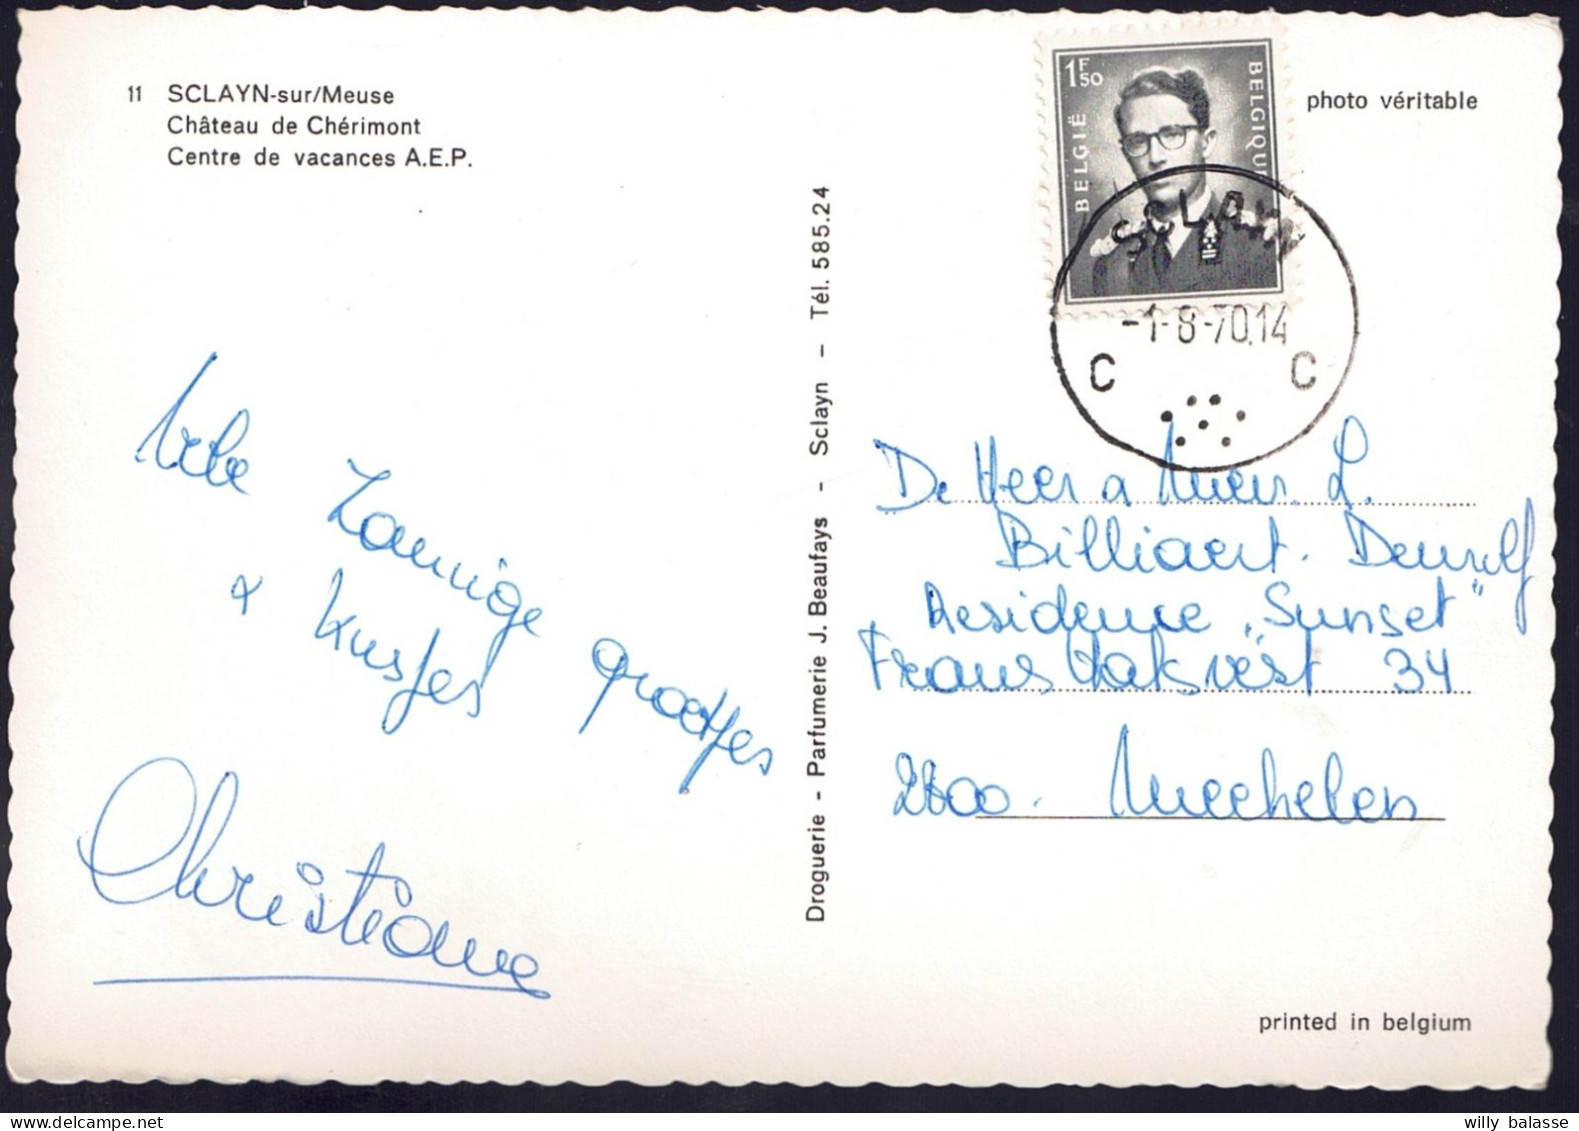 11 SCLAYN-sur/Meuse
Château de Chérimont
Centre de vacances A.E.P.
1F50
BELGIË
BELGIQUE
photo véritable
SCLAYN
-1-8-70.14
C C
Vele zonnige groetjes
& kusjes
Christiane
Droguerie - Parfumerie J. Beaufays - Sclayn - Tél. 585.24
De Heer & Mevr. L.
Billiaert. Dewolf
Residence „Sunset"
Frans Halsvest 34
2800. Mechelen
printed in belgium
willy balasse